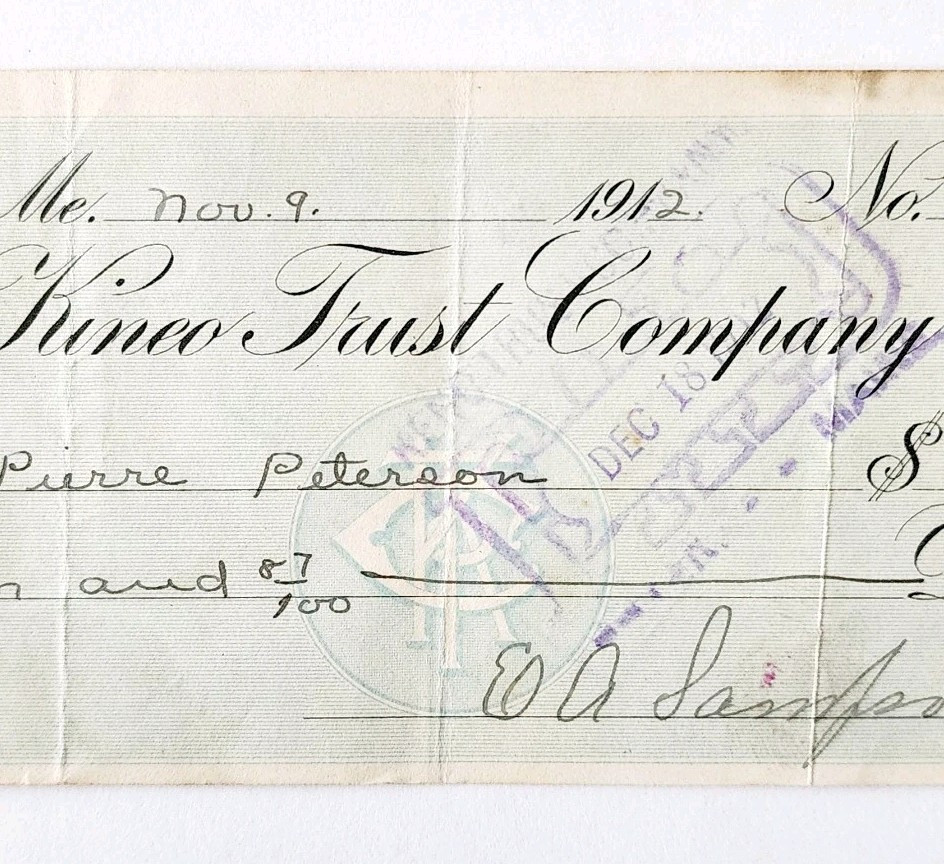 Me. Nov. 9. 1912. No.
Kineo Trust Company
Pierre Peterson $
and 87/100
E A
DEC 18